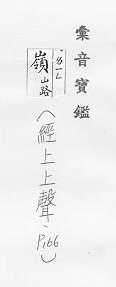 彙音寶鑑
嶺 山路
(經上上聲、P166)